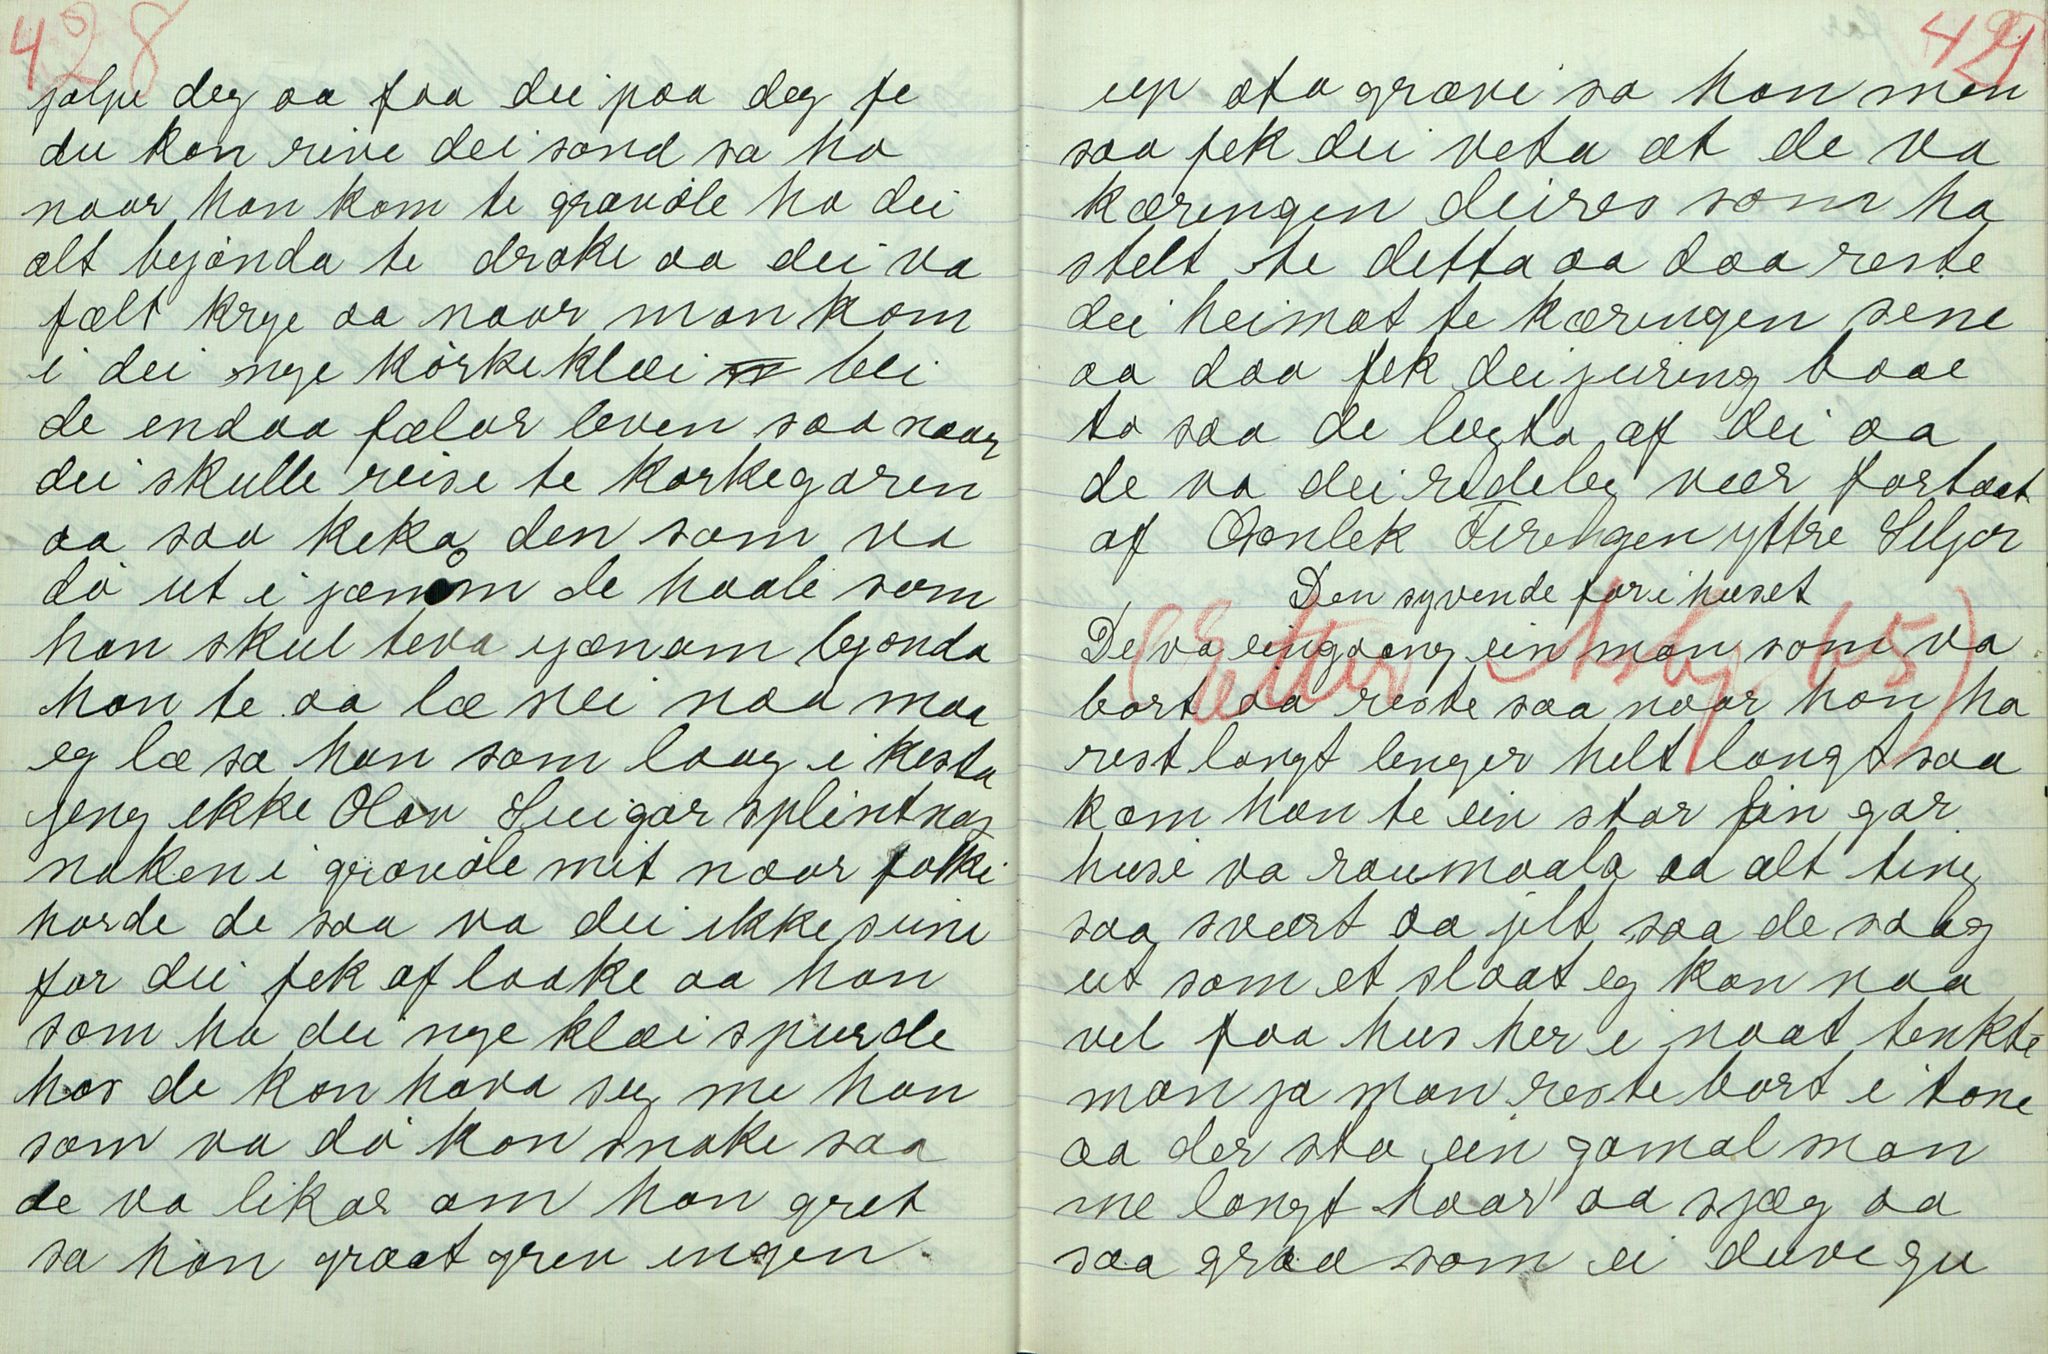 428
jølpe deg aa faa dei paa deg fe
du kan rive dei sond sa ho
naar han kom te gravøle ha dei
alt byjønda te drake aa dei va
fælt krye aa naar man kom
i dei nye kørkeklæi blei
de endaa fælar leven saa naag
dei skulle reise te kørkegaren
aa saa keka den som va
dø ut i jænøm de haale som
han skul teva jænøm byønda
han te aa læ nei naa maa
eg læ sa han som laag i kesta
jeng ikke Olav Suigar splintnag
naken i gravøle mit naar fölki
hørde de saa va dei ikke seine
for dei fek af laake aa han
som ha dei nye klæi spurde
hos de kan hava seg me han
som va dø kan snake saa
de va likar om han gret
sa han graat grev ingen
429
up ata grævi sa han men
saa fek dei veta at de va
kæringen deires som ha
stelt te detta aa daa reste
dei heimat te kæringen sine
aa daa fek dei juring baae
to saa de lugta af dei aa
de va dei redeleg vær fortaat
af Aanlek Firehgen yttre Seljor
Den syvende far i huset
(Etter Asbj. 65)
De va eingaang ein man som va
bort aa reste saa naar han ha
rest langt lenger helt langt saa
kom han te ein stor fin gar
husi va raumaala aa alt ting
saa svært aa jilt saa de saag
ut som et slaat eg kan naa
vel faa hus her i naat tenkte
man ja man reste bort i tone
aa der sto ein gamal man
me langt haar aa sjæg aa
saa graa som ei duve gu